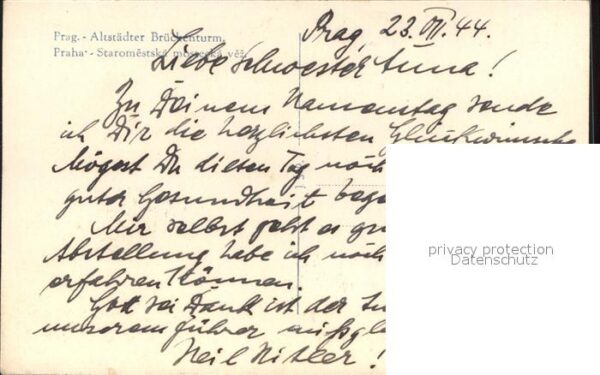 Prag, 23. VII. 44.
Prag.- Altstädter Brückenturm.
Praha - Staroměstská mostecká věž.
Liebe Schwester Anna!
Zu Deinem Namenstag sende
ich Dir die herzlichsten Glückwünsche
Mögest Du diesen Tag noch
guter Gesundheit bege
Mir selbst geht es gu
Abstellung habe ich noch
erfahren können.
Gott sei Dank ist der
unserem Führer mißgl
Heil Hitler!
privacy protection
Datenschutz